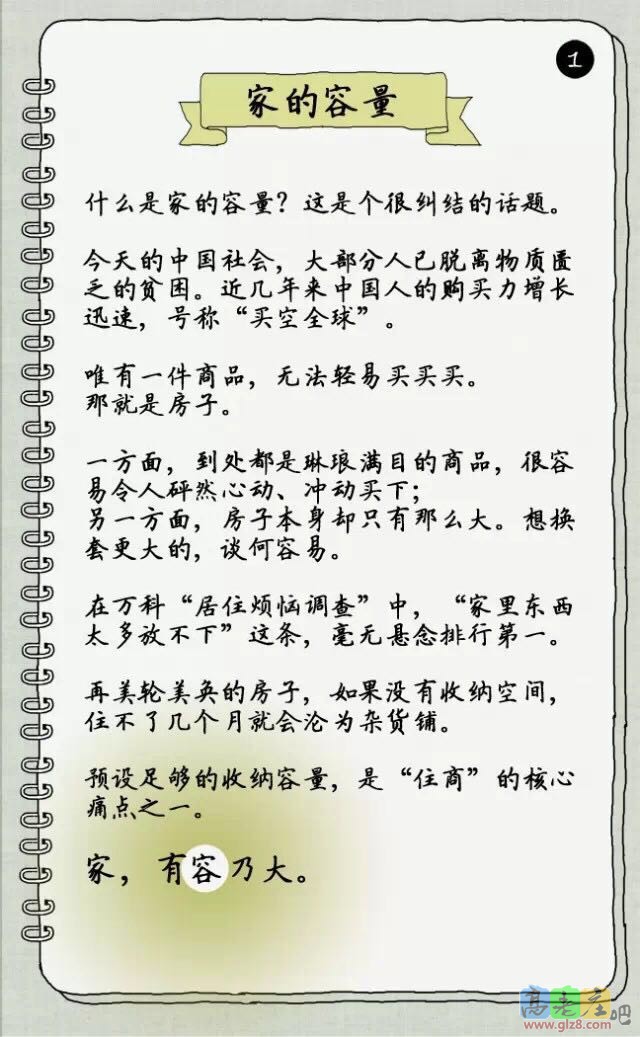 1
家的容量
什么是家的容量？这是个很纠结的话题。
今天的中国社会，大部分人已脱离物质匮
乏的贫困。近几年来中国人的购买力增长
迅速，号称“买空全球”。
唯有一件商品，无法轻易买买买。
那就是房子。
一方面，到处都是琳琅满目的商品，很容
易令人砰然心动、冲动买下；
另一方面，房子本身却只有那么大。想换
套更大的，谈何容易。
在万科“居住烦恼调查”中，“家里东西
太多放不下”这条，毫无悬念排行第一。
再美轮美奂的房子，如果没有收纳空间，
住不了几个月就会沦为杂货铺。
预设足够的收纳容量，是“住商”的核心
痛点之一。
家，有容乃大。
高老庄吧
www.glz8.com